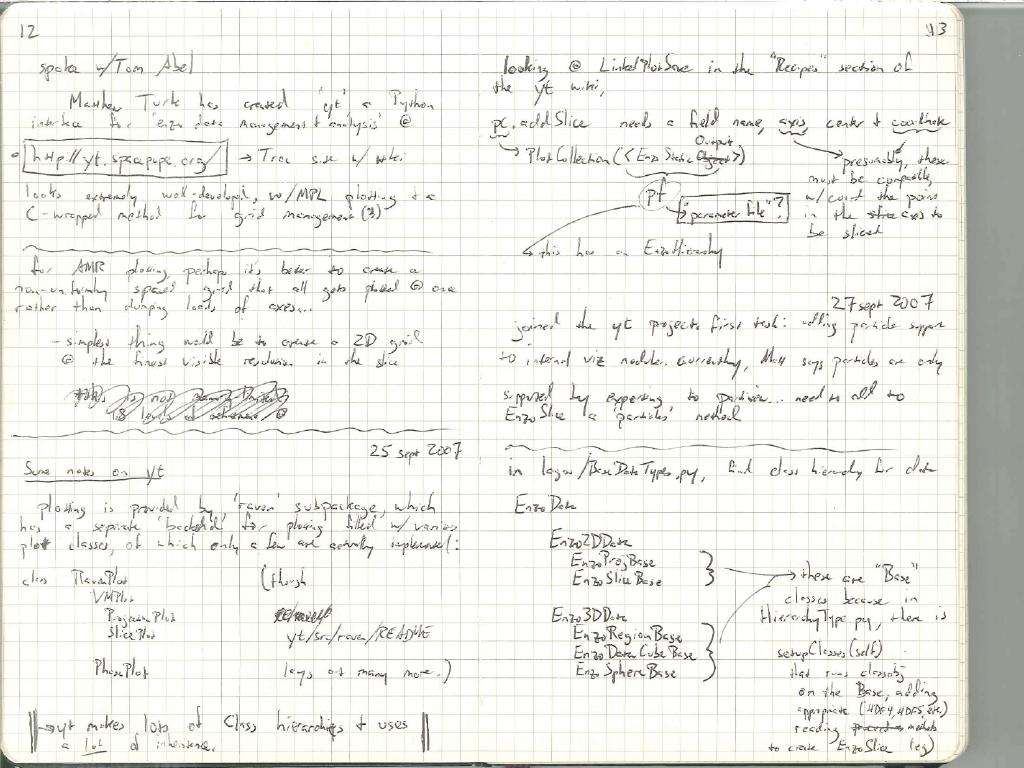 12
spoke w/Tom Abel
Matthew Turk has created 'yt' a Python
interface for 'enzo data management & analysis' @
http://yt.spacepope.org/ → Trac site w/ wiki
looks extremely well-developed, w/MPL plotting & a
C-wrapped method for grid management (?)
for AMR plotting, perhaps it's better to create a
non-uniformly spaced grid that all gets plotted @ once
rather than dumping loads of axes...
- simplest thing would be to create a 2D grid
@ the finest visible resolution in the slice
25 sept 2007
Some notes on yt
plotting is provided by 'raven' subpackage, which
has a separate 'backend' for plotting filled w/ various
plot classes, of which only a few are actually implemented:
class RavenPlot (though
VMPlot
ProjectionPlot
SlicePlot yt/src/raven/README
PhasePlot lays out many more.)
→ yt makes lots of Class hierarchies & uses
a lot of inheritence.
13
looking @ LinkedPlotSave in the "Recipes" section of
the yt wiki,
pc.addSlice needs a field name, axis, center & coordinate
Output
→ PlotCollection(<EnzoStatic Object>)
presumably, these
must be compatible,
w/ coord the point
in the axes to
be sliced
pf
→ "parameter file"?
this has an EnzoHierarchy
27 sept 2007
joined the yt project. First task: adding particle support
to internal viz module. currently, Matt says particles are only
supported by exporting to partiview... need to add to
EnzoSlice a 'particles' method
in lagos/BaseDataTypes.py, find class hierarchy for data
EnzoData
Enzo2DData
EnzoProjBase
EnzoSliceBase
Enzo3DData
EnzoRegionBase
EnzoDataCubeBase
EnzoSphereBase
→ these are "Base"
classes because in
HierarchyType.py, there is
setupClasses(self)
that runs classobj
on the Base, adding
appropriate (HDF4, HDF5, etc)
reading methods
to create EnzoSlice (eg)